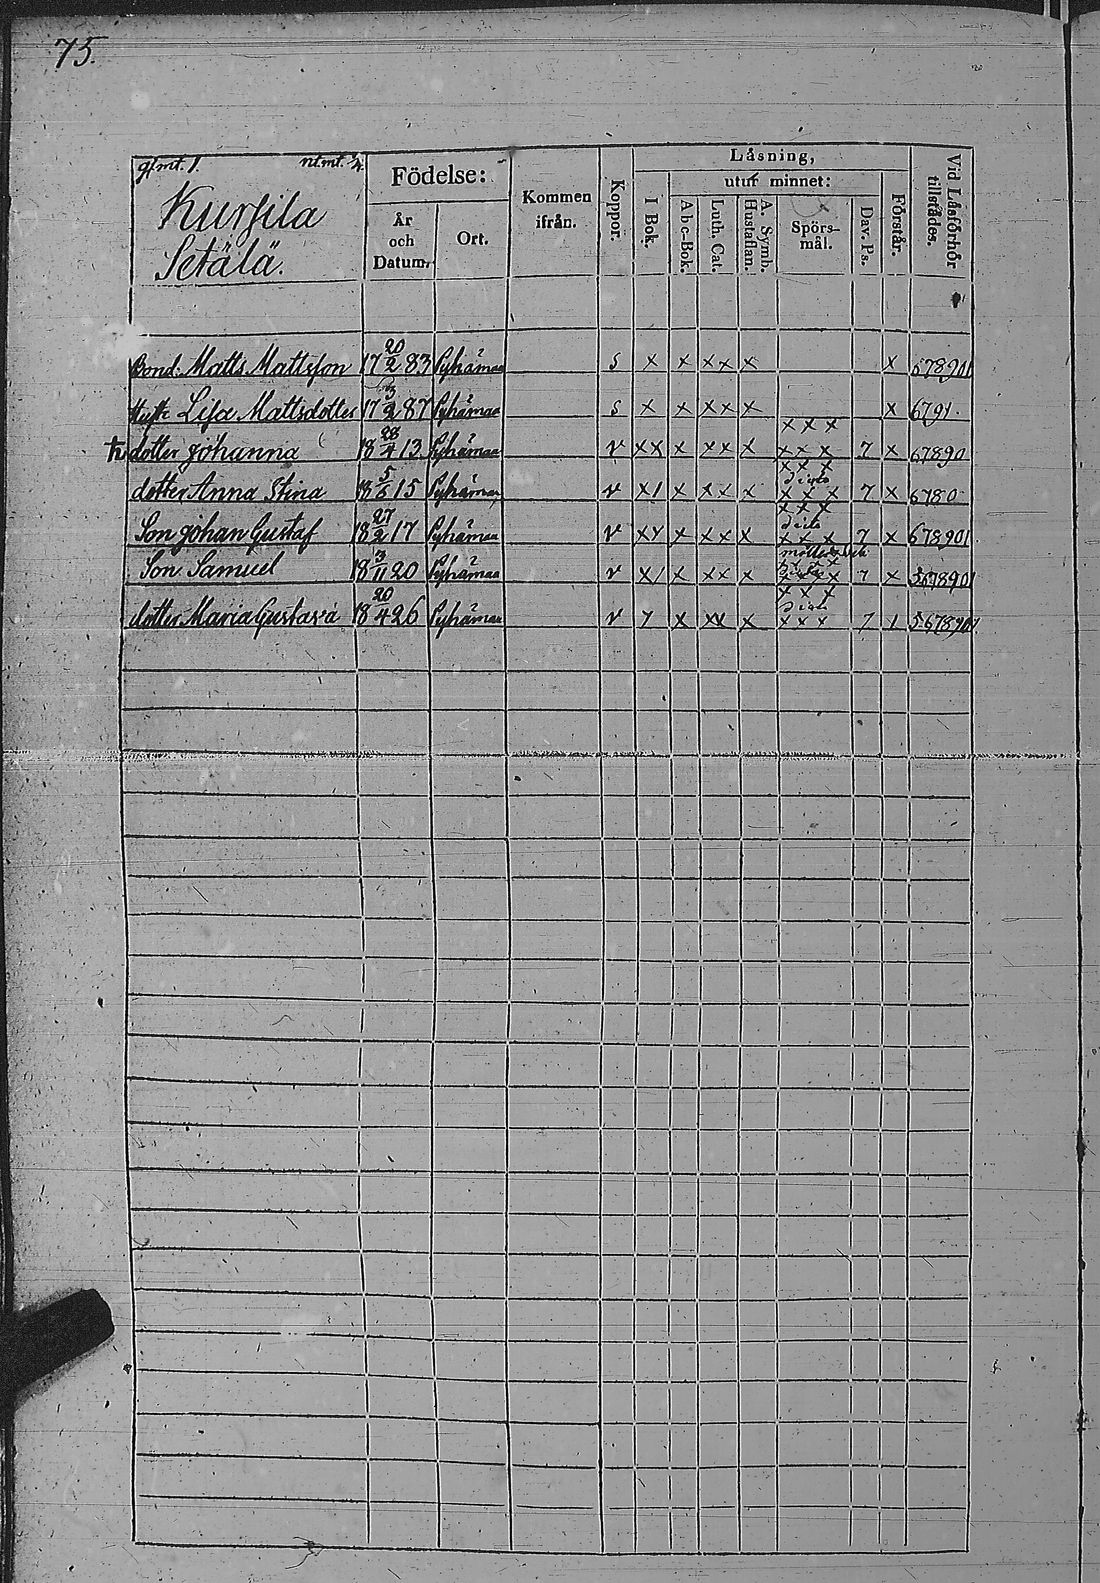 75.
gl mt. 1. nt. mt. 1/4
Kursila
Setälä.
Födelse:
År och Datum.
Ort.
Kommen ifrån.
Koppor.
Läsning,
I Bok.
utur minnet:
Abc-Bok.
Luth. Cat.
A. Symb. Hustaflan.
Spörs-mål.
Dav. Ps.
Förstår.
Vid Läsförhör tillstädes.
Bond: Matts Mattsson 17 20/2 83 Pyhämaa s x x xx x x 678901
Hust: Lisa Mattsdotter 17 3/2 87 Pyhämaa s x x xx x x 6791.
dotter Johanna 18 28/4 13 Pyhämaa v xx x xx x xxx xxx 7 x 67890
dotter Anna Stina 18 5/6 15 Pyhämaa v x1 x xx x xxx dito xxx 7 x 6780
Son Johan Gustaf 18 27/2 17 Pyhämaa v xx x xx x xxx dito xxx 7 x 678901
Son Samuel 18 3/11 20 Pyhämaa v x1 x xx x 7 x 5678901
dotter Maria Gustava 18 20/4 26 Pyhämaa v 7 x xx x xxx dito xxx 7 1 5678901